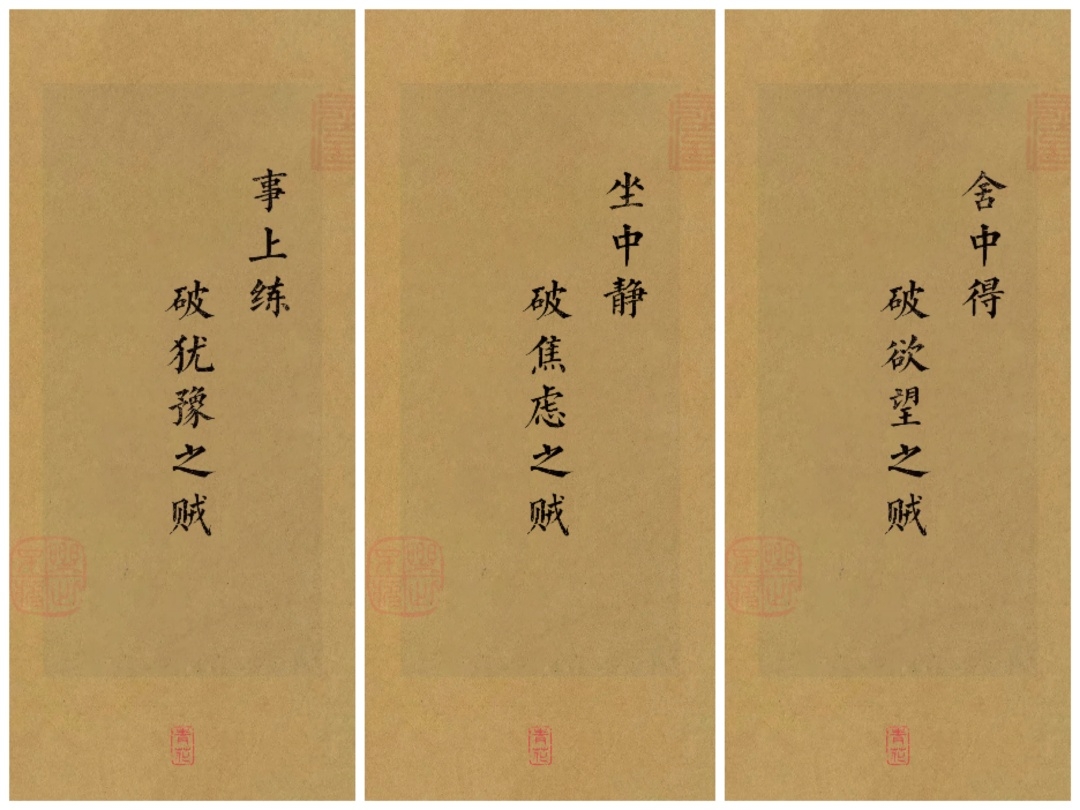 事上练
破犹豫之贼
坐中静
破焦虑之贼
舍中得
破欲望之贼
青花
青花
青花